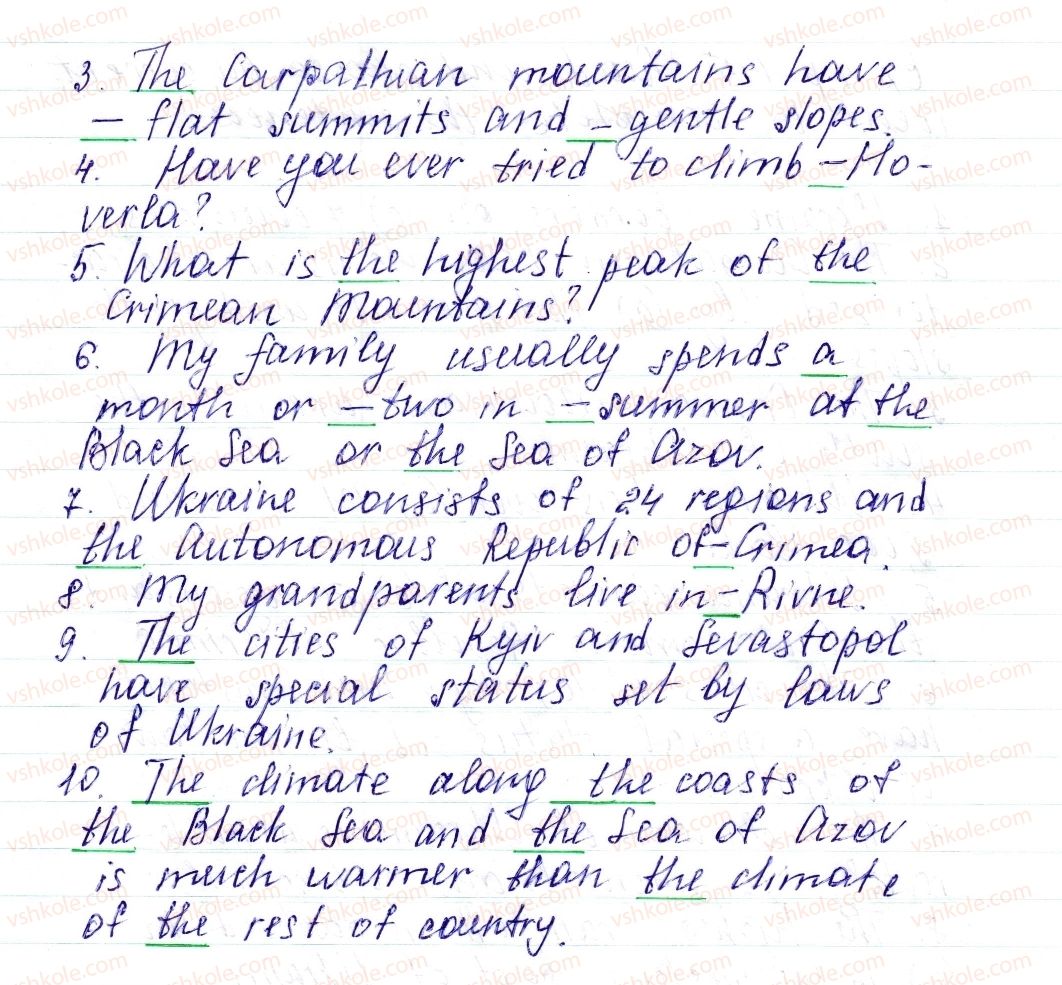 3. The Carpathian mountains have
– flat summits and – gentle slopes.
4. Have you ever tried to climb – Ho-
verla?
5. What is the highest peak of the
Crimean Mountains?
6. My family usually spends a
month or – two in – summer at the
Black Sea or the Sea of Azov.
7. Ukraine consists of 24 regions and
the Autonomous Republic of – Crimea.
8. My grandparents live in – Rivne.
9. The cities of Kyiv and Sevastopol
have special status set by laws
of Ukraine.
10. The climate along the coasts of
the Black Sea and the Sea of Azov
is much warmer than the climate
of the rest of country.